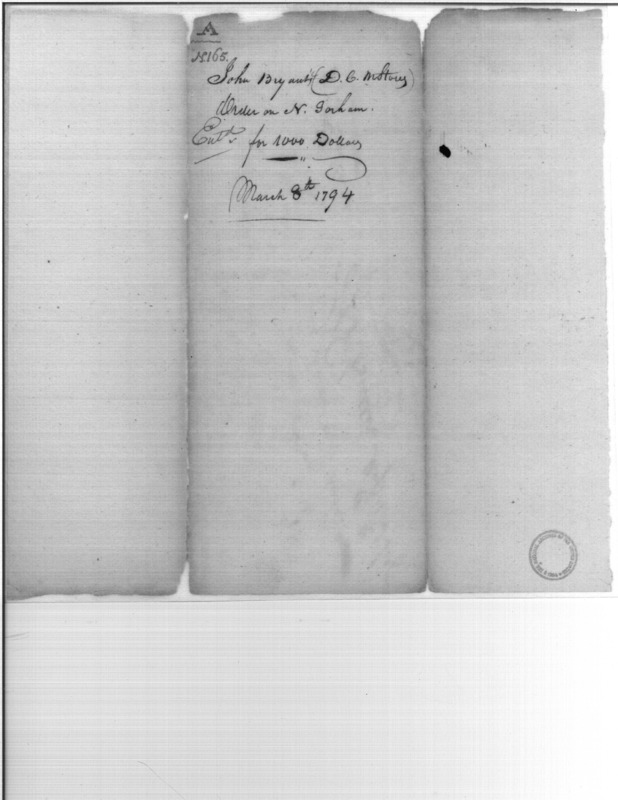 A
N165.
John Bryant (D. C. M Stores)
Order on N. Gorham.
Ent.d for 1000 Dollars
March 8th 1794